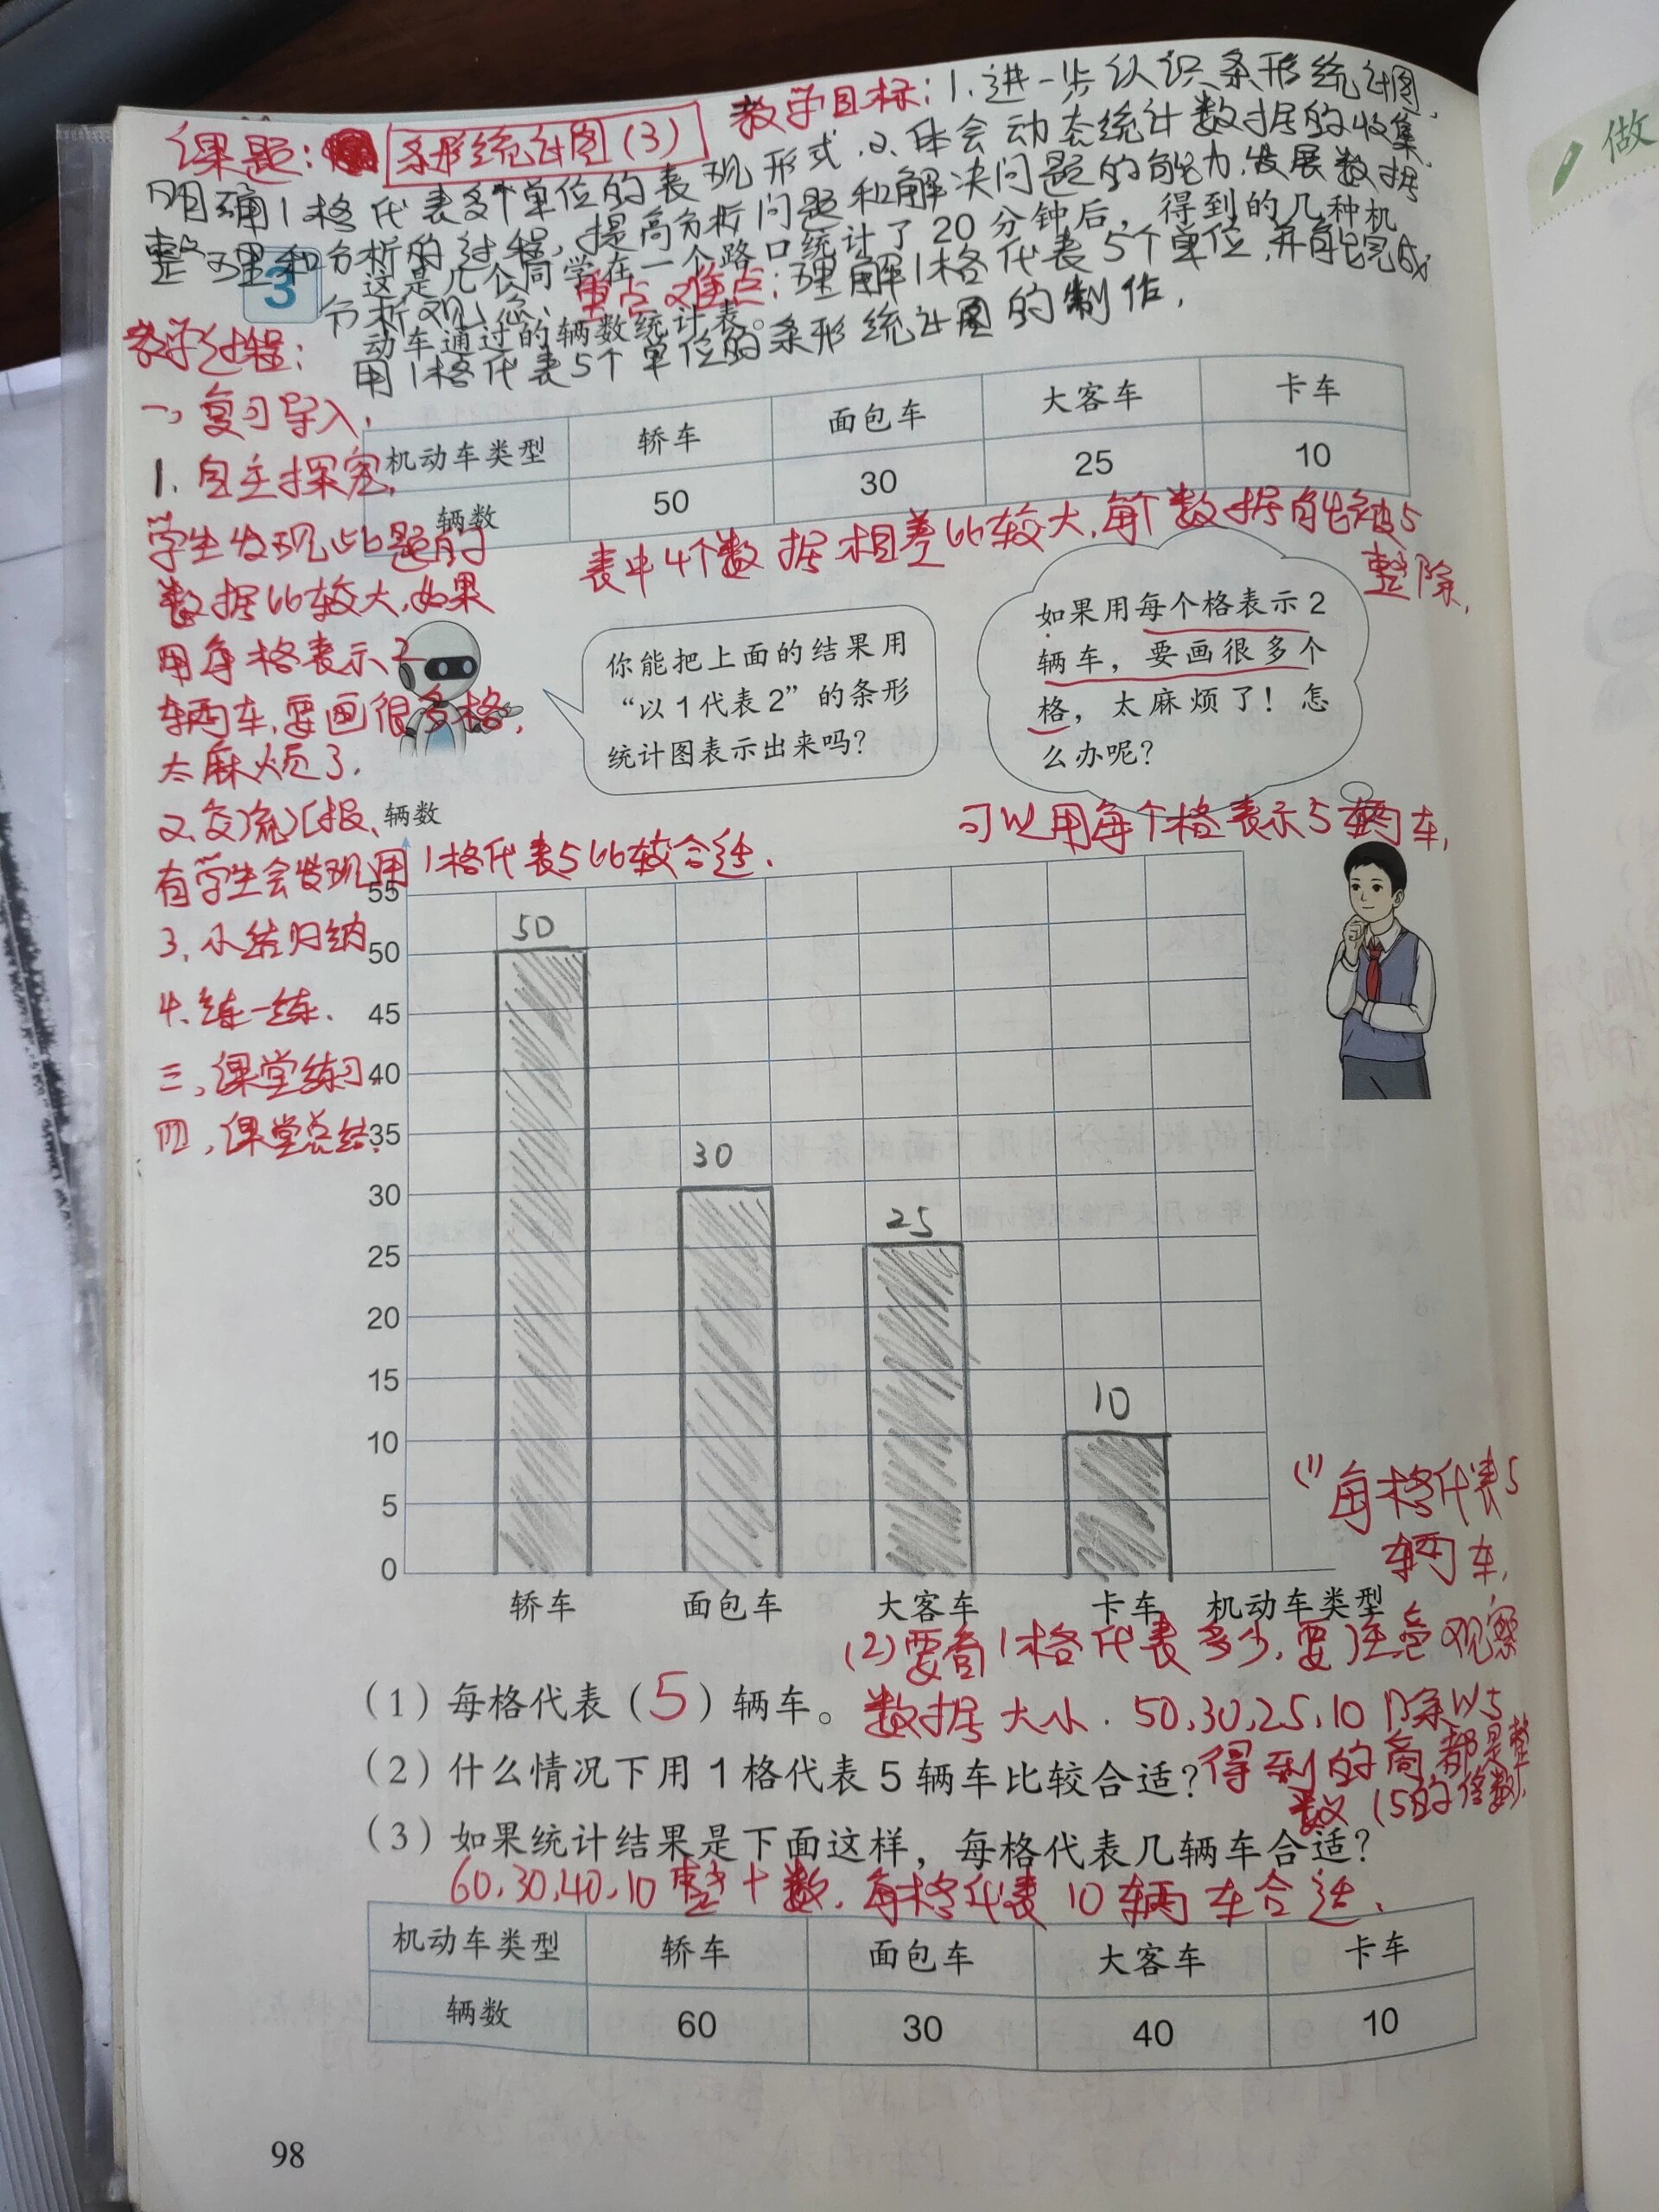 课题：条形统计图（3）
教学目标：1.进一步认识条形统计图，
明确1格代表多个单位的表现形式.2.体会动态统计数据的收集、
整理和分析的过程，提高分析问题和解决问题的能力，发展数据
分析观念.
重点难点：理解1格代表5个单位，并能完成
用1格代表5个单位的条形统计图的制作.
3
这是几个同学在一个路口统计了20分钟后，得到的几种机
动车通过的辆数统计表。
机动车类型 轿车 面包车 大客车 卡车
辆数 50 30 25 10
表中4个数据相差比较大，每个数据能被5
整除.
教学过程：
一、复习导入.
1.自主探究.
学生发现此题的
数据比较大，如果
用每格表示2
辆车，要画很多格，
太麻烦了.
2.交流汇报、
有学生会发现用1格代表5比较合适.
3.小结归纳
4.练一练.
三、课堂练习
四、课堂总结.
你能把上面的结果用
“以1代表2”的条形
统计图表示出来吗？
如果用每个格表示2
辆车，要画很多个
格，太麻烦了！怎
么办呢？
可以用每个格表示5辆车.
辆数
55
50
45
40
35
30
25
20
15
10
5
0
50
30
25
10
轿车 面包车 大客车 卡车 机动车类型
(1)每格代表5
辆车.
（1）每格代表（5）辆车。
（2）什么情况下用1格代表5辆车比较合适？
(2)要看1格代表多少，要注意观察
数据大小.50,30,25,10 除以5
得到的商都是整
数(5的倍数).
（3）如果统计结果是下面这样，每格代表几辆车合适？
60,30,40,10整十数，每格代表10辆车合适.
机动车类型 轿车 面包车 大客车 卡车
辆数 60 30 40 10
98
做